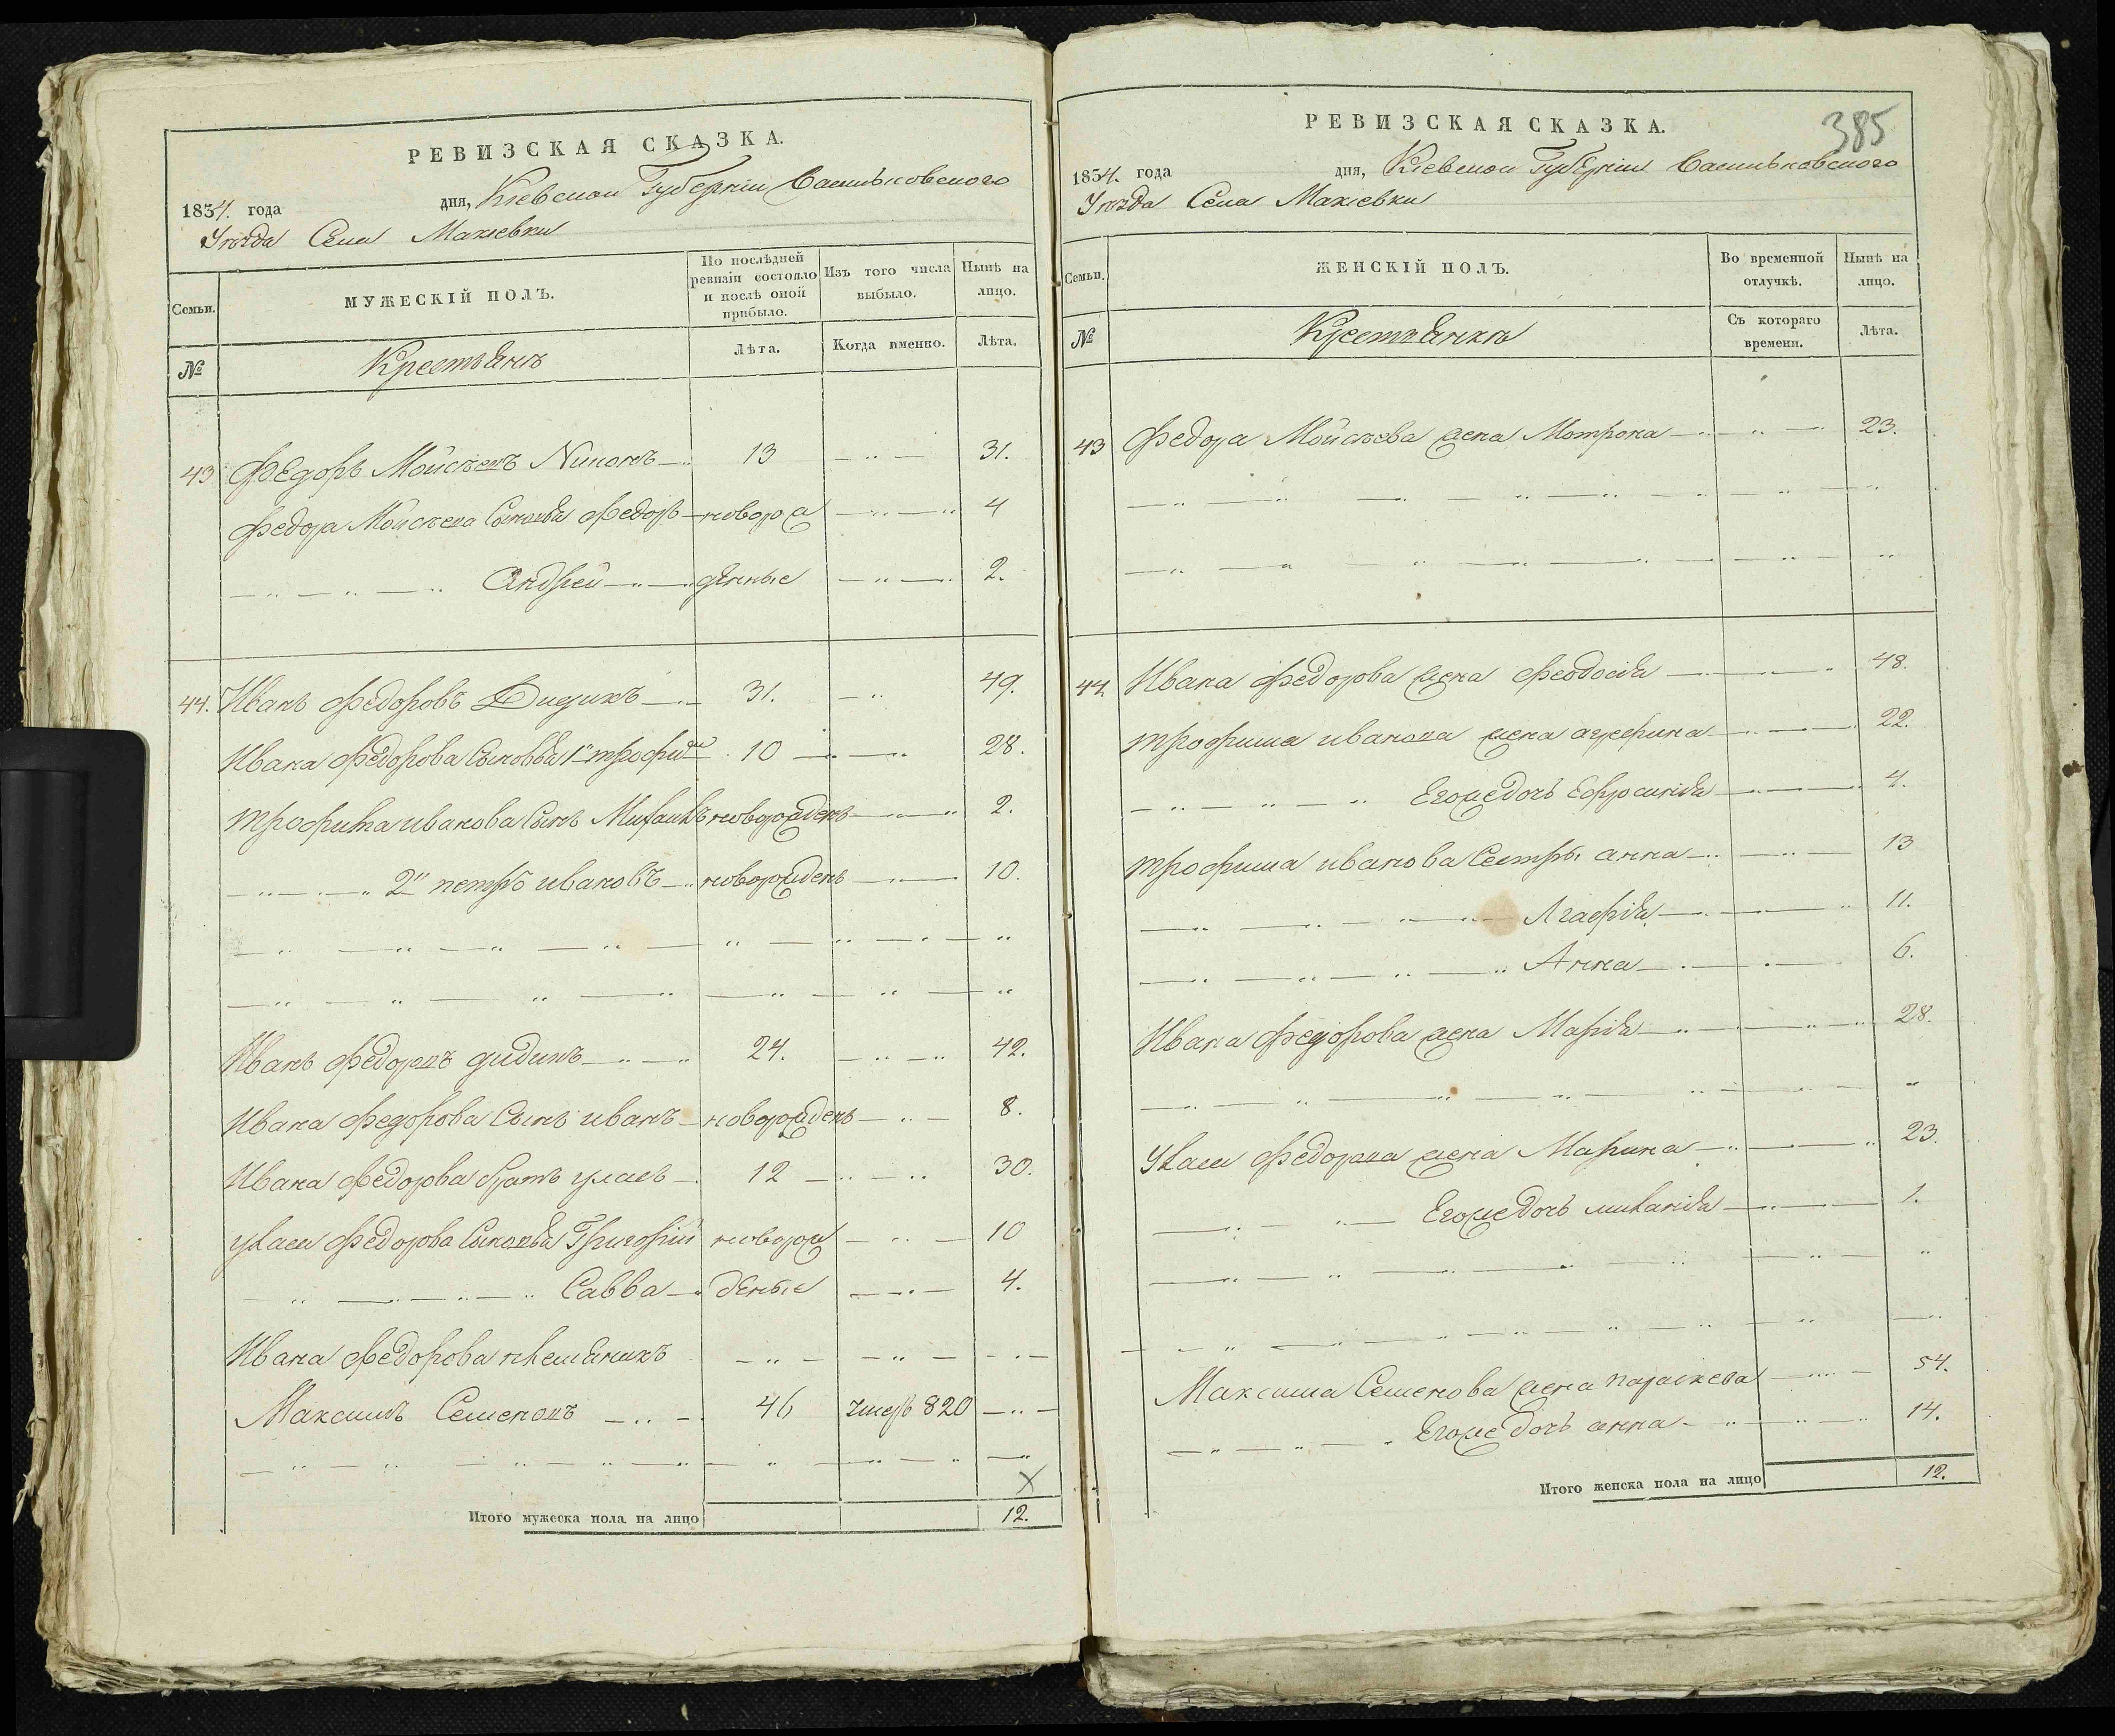 РЕВИЗСКАЯ СКАЗКА.
1834. года дня, Кіевской Губерніи Васильковского
Уѣзда Села Махневки
Семьи. МУЖЕСКІЙ ПОЛЪ. По послѣдней ревизіи состояло и послѣ оной прибыло. Изъ того числа выбыло. Нынѣ на лицо.
№ Крестьянъ Лѣта. Когда именно. Лѣта.
43 Федоръ Мойсѣевъ 13 31.
Федора Мойсѣева Сыновья Федоръ новорож 4
Андрей денные 2.
44. Иванъ Федоровъ Дидикъ 31. 49.
Ивана Федорова Сыновья 1й трофим 10 28.
трофима иванова Сынъ Михаилъ новорожденъ 2.
2й петръ ивановъ новорожденъ 10.
Иванъ Федоровъ дидикъ 24. 42.
Ивана Федорова Сынъ иванъ новорожденъ 8.
Ивана Федорова братъ уласъ 12 30.
уласа Федорова Сыновья Григорій новорож 10
Савва деные 4.
Ивана Федорова племяникъ
Максимъ Семеновъ 46 умеръ 820
Итого мужеска пола на лицо 12.
РЕВИЗСКАЯ СКАЗКА.
385
1834. года дня, Кіевской Губерніи Васильковского
Уѣзда Села Махневки
Семьи. ЖЕНСКІЙ ПОЛЪ. Во временной отлучкѣ. Нынѣ на лицо.
№ Крестьянки Съ котораго времени. Лѣта.
43 Федора Мойсѣева жена Мотрона 23.
44. Ивана Федорова жена Феодосія 48.
трофима иванова жена 22.
Его же дочь Ефросинія 4.
трофима иванова Сестры анна 13
Агафія 11.
Анна 6.
Ивана Федорова жена Марія 28.
Уласа Федорова жена Марина 23.
Его же дочь миланія 1.
Максима Семенова жена параскева 54.
Его же дочь анна 14.
Итого женска пола на лицо 12.